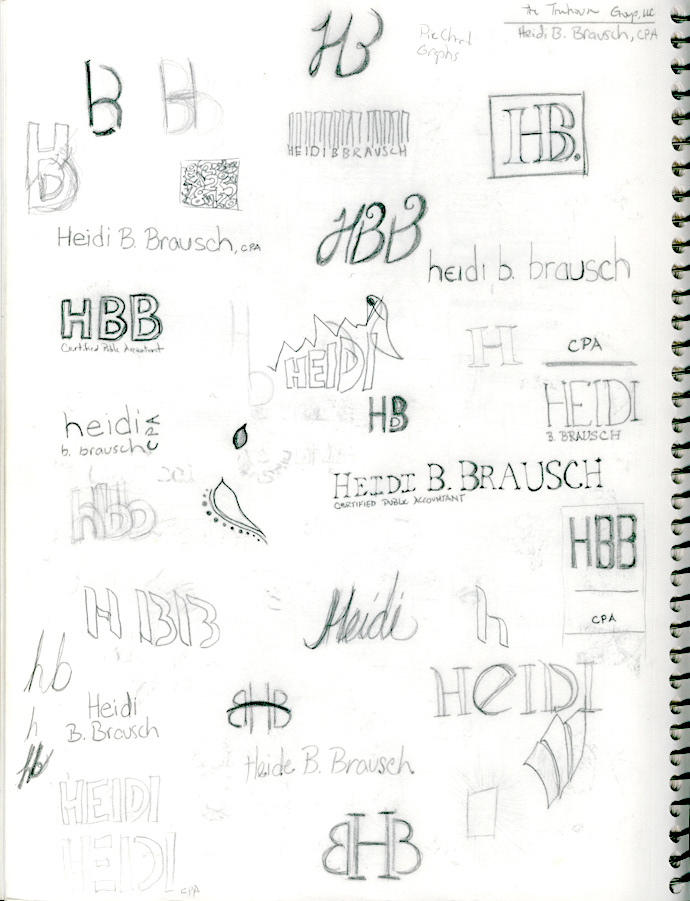 The Group, LLC
Heidi B. Brausch, CPA
HB
Pie Chart
Graphs
B
HB
HEIDI B BRAUSCH
HB.
HB
Heidi B. Brausch, CPA
HBB
heidi b. brausch
HBB
Certified Public Accountant
HEIDI
H
CPA
HEIDI
B. BRAUSCH
HB
heidi CPA
b. brausch
HEIDI B. BRAUSCH
CERTIFIED PUBLIC ACCOUNTANT
hbb
HBB
CPA
H BB
Heidi
h
hb
h
hb
Heidi
B. Brausch
BHB
HeIDI
Heide B. Brausch
HEIDI
HEIDI CPA
BHB